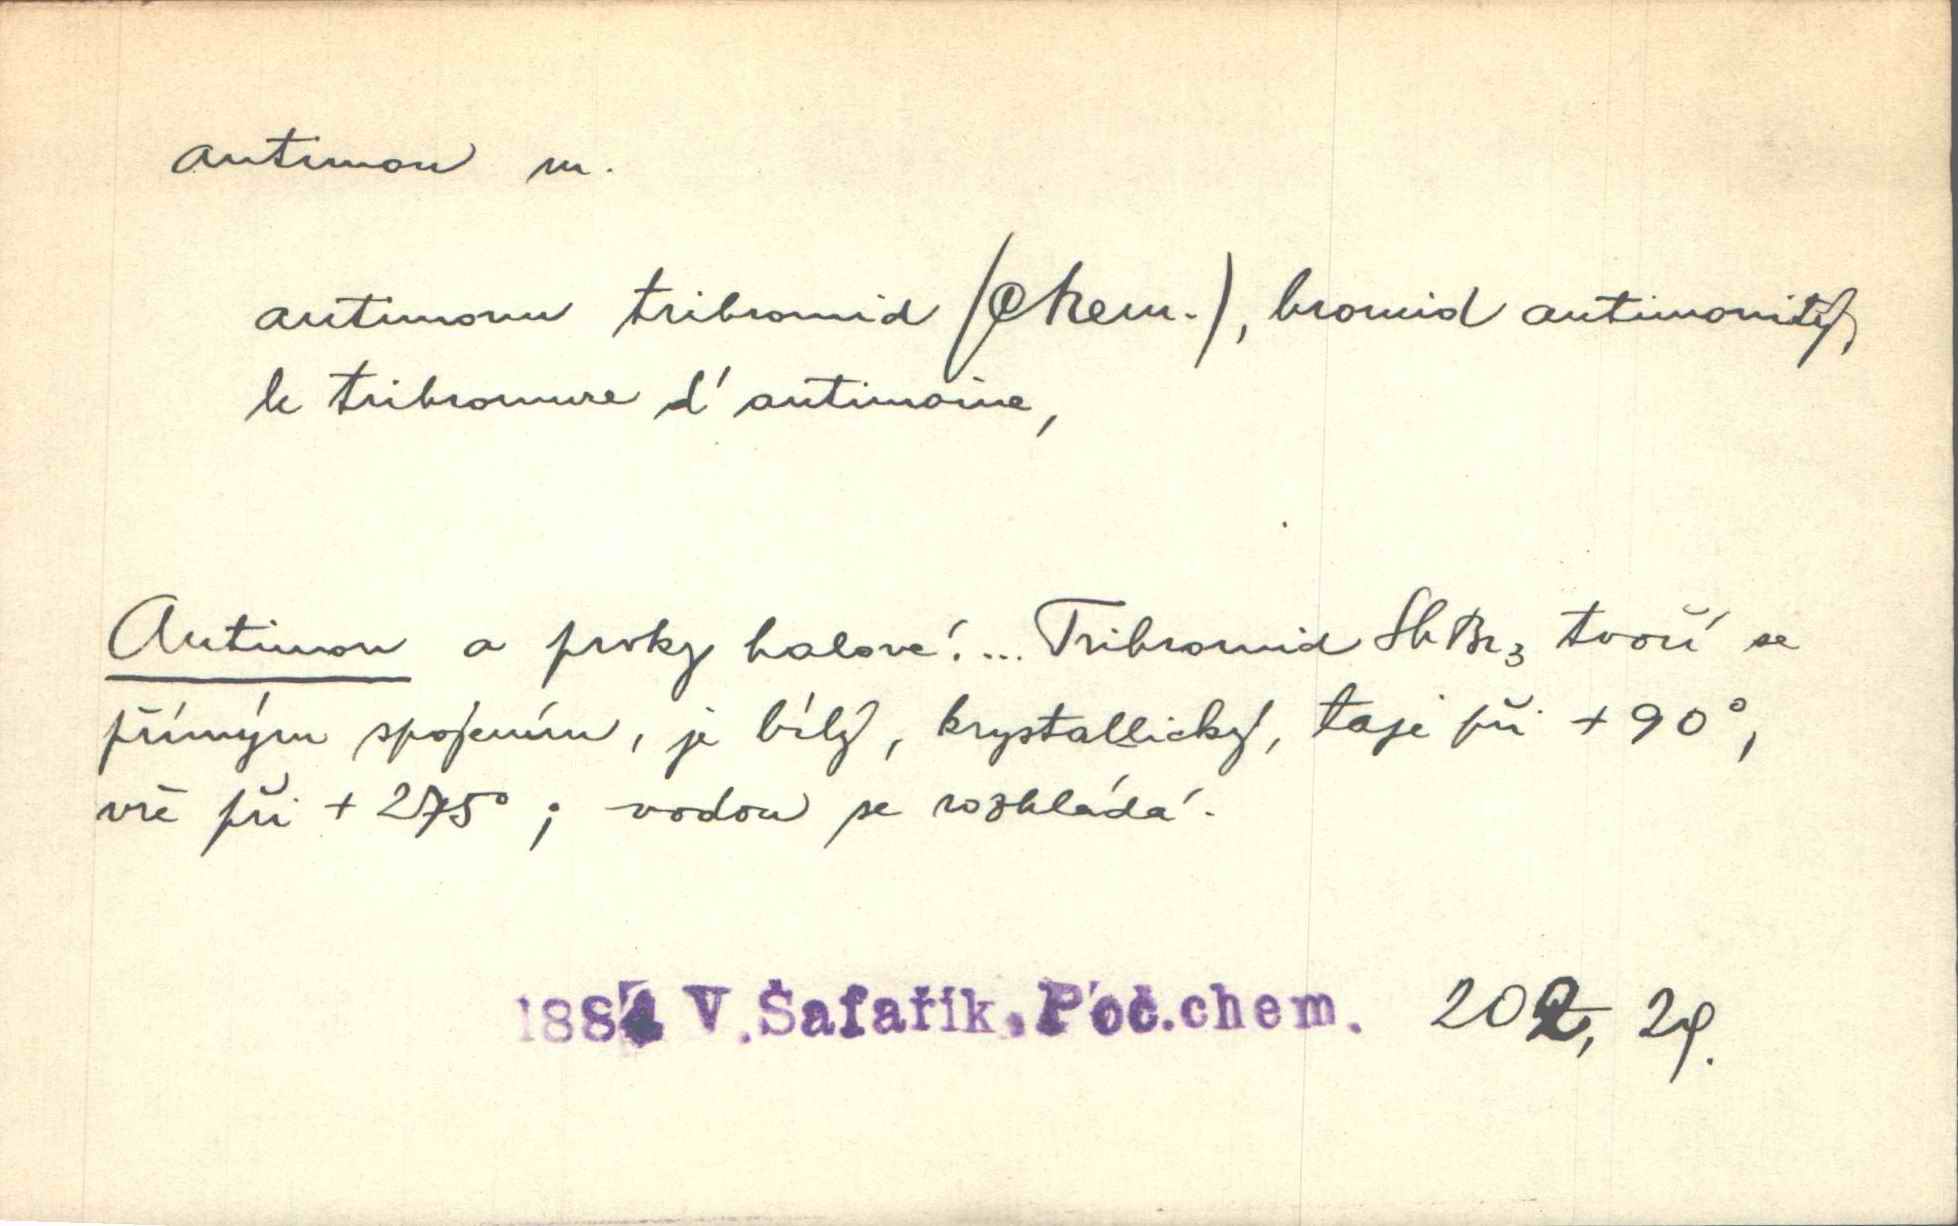 antimon m.
antimonu tribromid (chem.), bromid antimonitý,
le tribromure d'antimoine,
Antimon a prvky halové: ... Tribromid SbBr3 tvoří se
přímým spojením, je bílý, krystallický, taje při +90°,
vře při +275°; vodou se rozkládá.
1884 V. Šafařík. Poč. chem. 202, 2